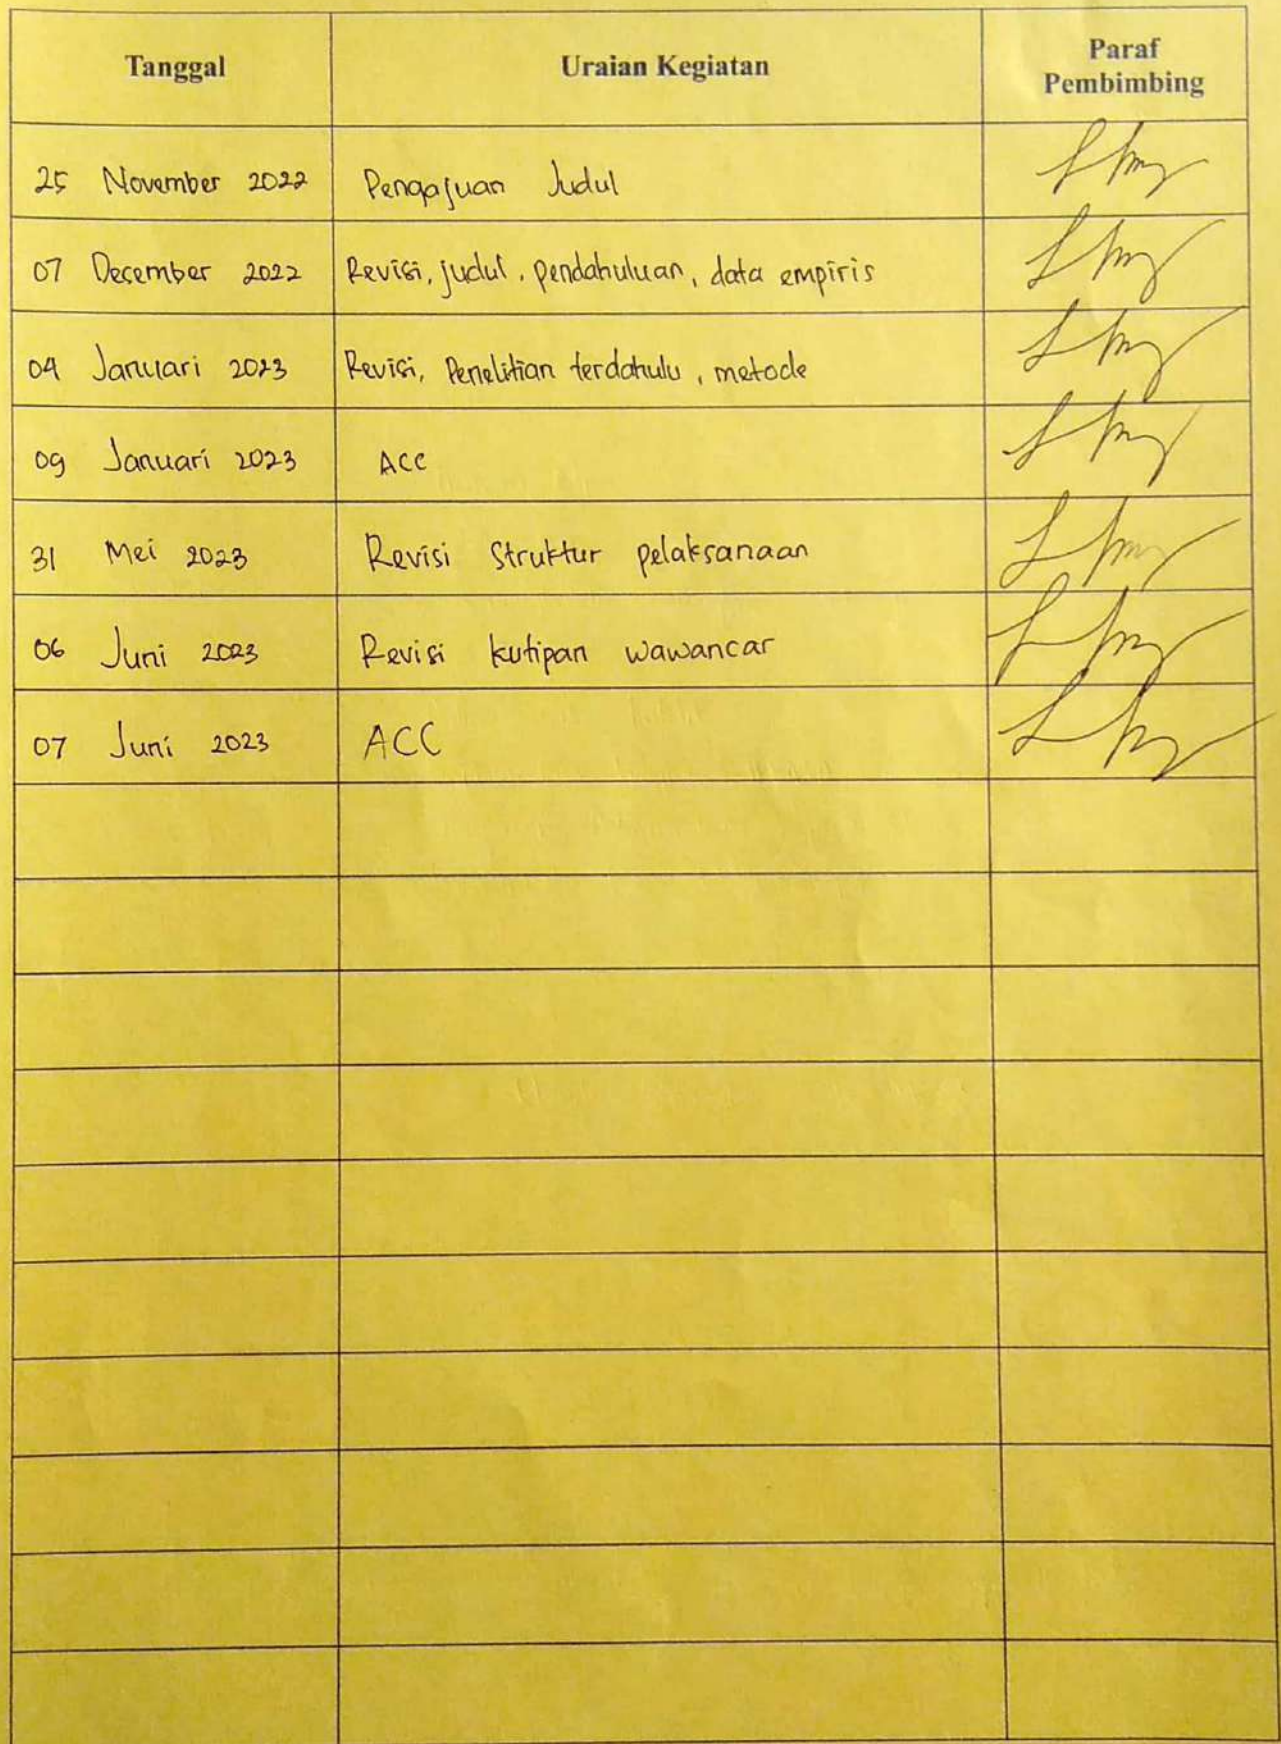 Tanggal Uraian Kegiatan Paraf
Pembimbing
25 November 2022 Pengajuan Judul
07 December 2022 Revisi, judul, pendahuluan, data empiris
04 Januari 2023 Revisi, Penelitian terdahulu, metode
09 Januari 2023 ACC
31 Mei 2023 Revisi Struktur pelaksanaan
06 Juni 2023 Revisi kutipan wawancar
07 Juni 2023 ACC